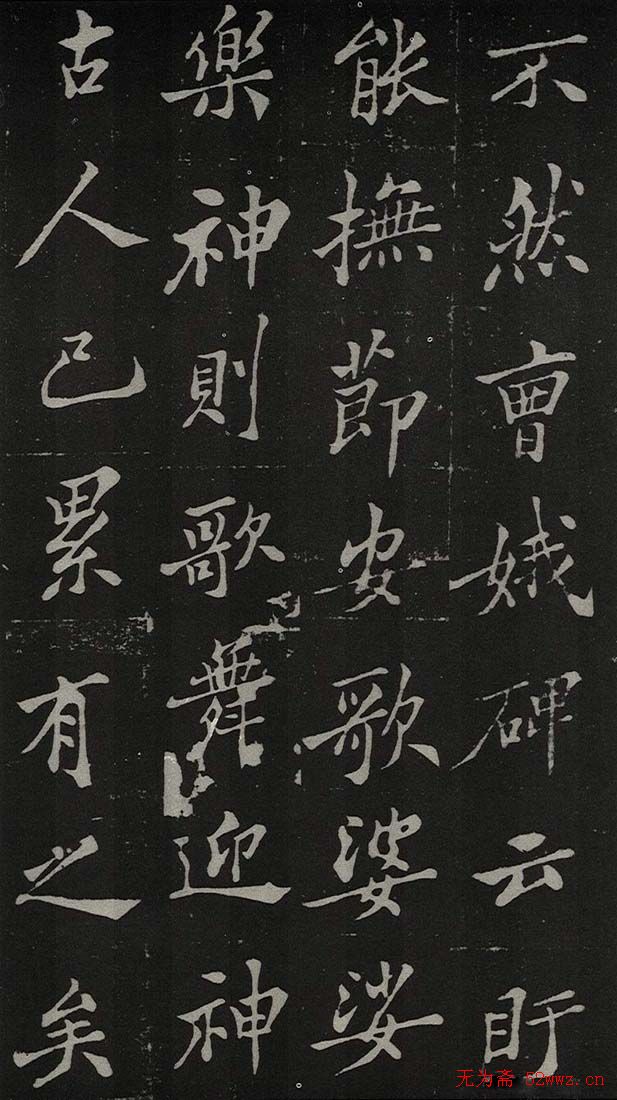 不然曹娥碑云盱
能撫節安歌婆娑
樂神則歌舞迎神
古人已累有之矣
无为斋 52wwz.cn